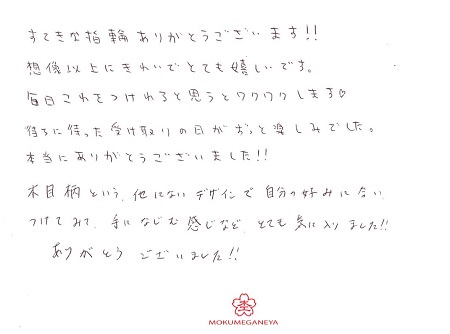 すてきな指輪ありがとうございます!!
想像以上にきれいでとても嬉しいです。
毎日これをつけれると思うとワクワクします♡
待ちに待った受け取りの日がずっと楽しみでした。
本当にありがとうございました!!
木目柄という、他にないデザインで自分の好みに合い
つけてみて、手になじむ感じなど、とても気に入りました!!
ありがとうございました!!
MOKUMEGANEYA